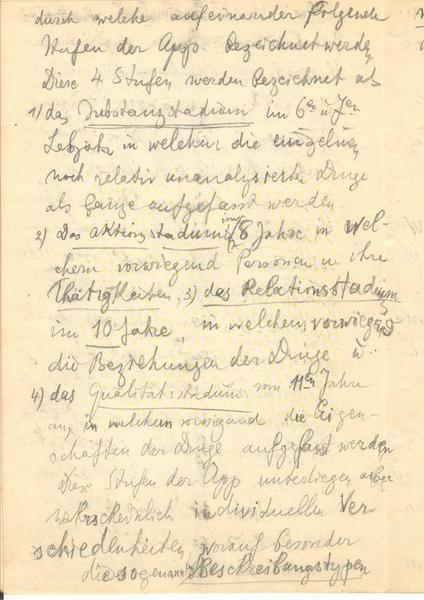 durch welche aufeinander folgende
Stufen der App. bezeichnet werden
Diese 4 Stufen werden bezeichnet als
1) das Substanzstadium im 6en u 7en
Lebjahr in welchem die einzelnen
noch relativ unanalysierten Dinge
als Ganze aufgefasst werden
2) Das Aktionsstadium im 8 Jahre in wel-
chem vorwiegend Personen u ihre
Thätigkeiten, 3) das Relationsstadium
im 10 Jahre, in welchem vorwiegend
die Beziehungen der Dinge u.
4) das Qualitätsstadium vom 11en Jahre
an, in welchem vorwiegend die Eigen-
schaften der Dinge aufgefasst werden
Diese Stufen der App unterliegen aber
wahrscheinlich individuellen Ver-
schiedenheiten, worauf besonder
die sogenann Beschreibungstypen